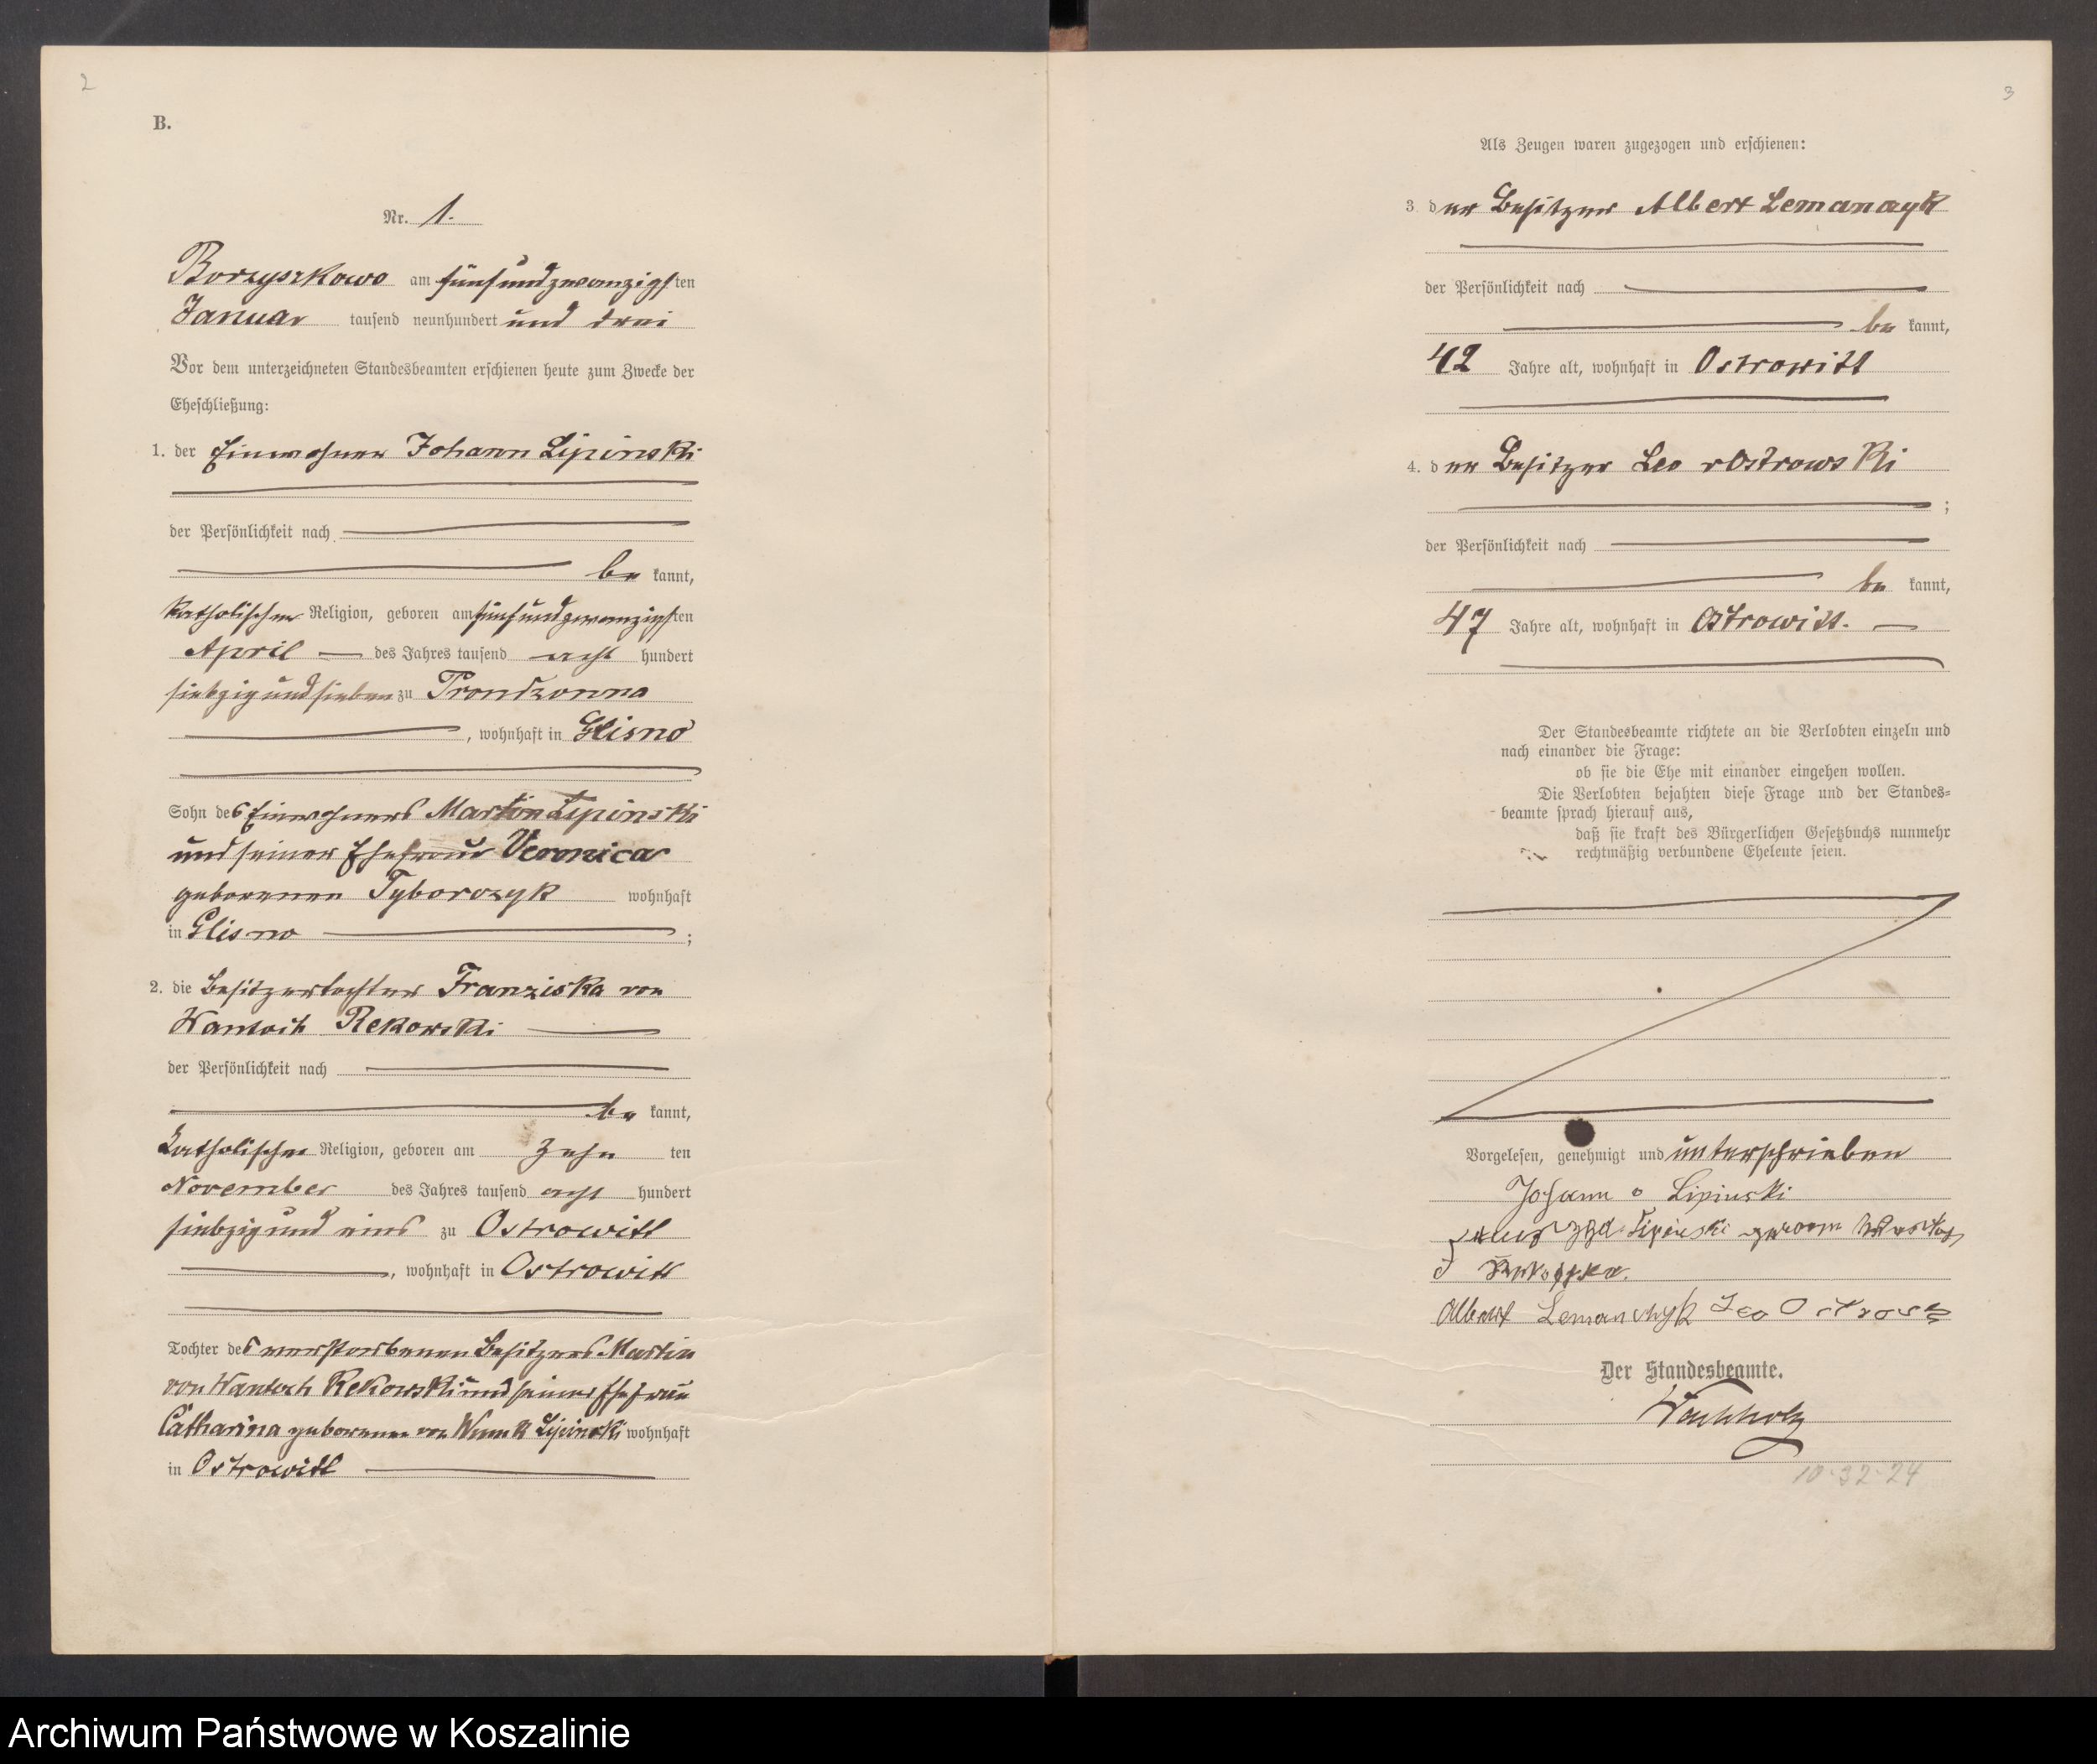 2
B.
Nr. 1.
Borzyszkowo am fünfundzwanzigsten
Januar tausend neunhundert und drei
Vor dem unterzeichneten Standesbeamten erschienen heute zum Zwecke der
Eheschließung:
1. der Einwohner Johann Lipinski
der Persönlichkeit nach
be kannt,
katholischer Religion, geboren am fünfundzwanzigsten
April des Jahres tausend acht hundert
siebzig und sieben zu Prondzonna
, wohnhaft in Glisno
Sohn des Einwohners Martin Lipinski
und seiner Ehefrau Veronica
geborenen Tyborczyk wohnhaft
in Glisno ;
2. die Besitzertochter Franziska von
Wantoch Rekowski
der Persönlichkeit nach
be kannt,
katholischer Religion, geboren am zehn ten
November des Jahres tausend acht hundert
siebzig und eins zu Ostrowitt
, wohnhaft in Ostrowitt
Tochter des verstorbenen Besitzers Martin
von Wantoch Rekowski und seiner Ehefrau
Catharina geborenen von Wnuk Lipinski wohnhaft
in Ostrowitt
3
Als Zeugen waren zugezogen und erschienen:
3. der Besitzer Albert Lemanczyk
der Persönlichkeit nach
be kannt,
42 Jahre alt, wohnhaft in Ostrowitt
4. der Besitzer Leo v Ostrowski
;
der Persönlichkeit nach
be kannt,
47 Jahre alt, wohnhaft in Ostrowitt.
Der Standesbeamte richtete an die Verlobten einzeln und
nach einander die Frage:
ob sie die Ehe mit einander eingehen wollen.
Die Verlobten bejahten diese Frage und der Standes-
beamte sprach hierauf aus,
daß sie kraft des Bürgerlichen Gesetzbuchs nunmehr
rechtmäßig verbundene Eheleute seien.
Vorgelesen, genehmigt und unterschrieben
Johann v Lipinski
Lipinski
Albert Lemanchyk Leo Ostrows
Der Standesbeamte.
10.32.24
Archiwum Państwowe w Koszalinie